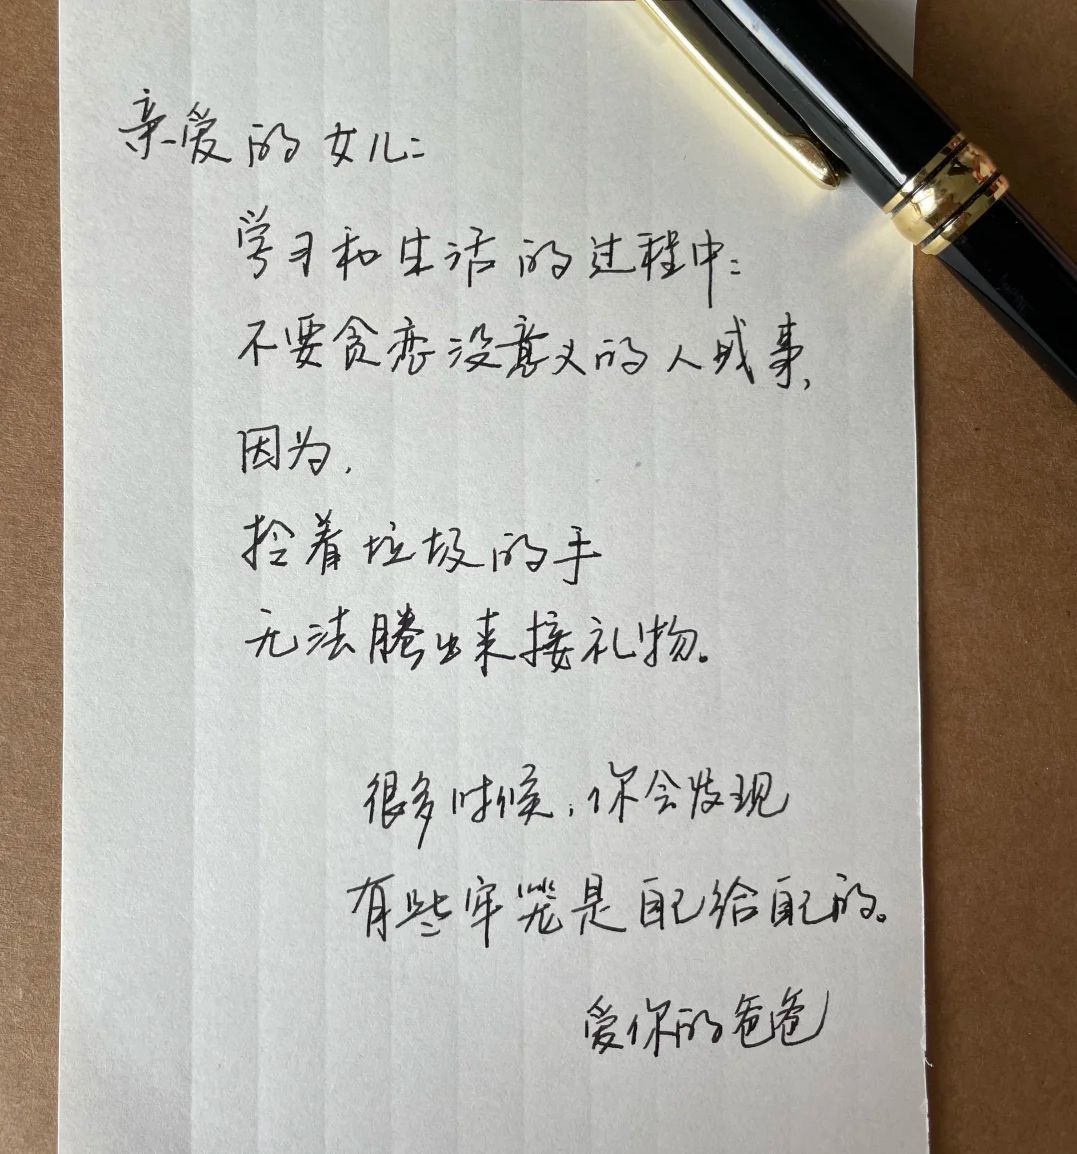 亲爱的女儿：
学习和生活的过程中：
不要贪恋没意义的人或事，
因为，
拎着垃圾的手
无法腾出来接礼物。
很多时候，你会发现
有些牢笼是自己给自己的。
爱你的爸爸